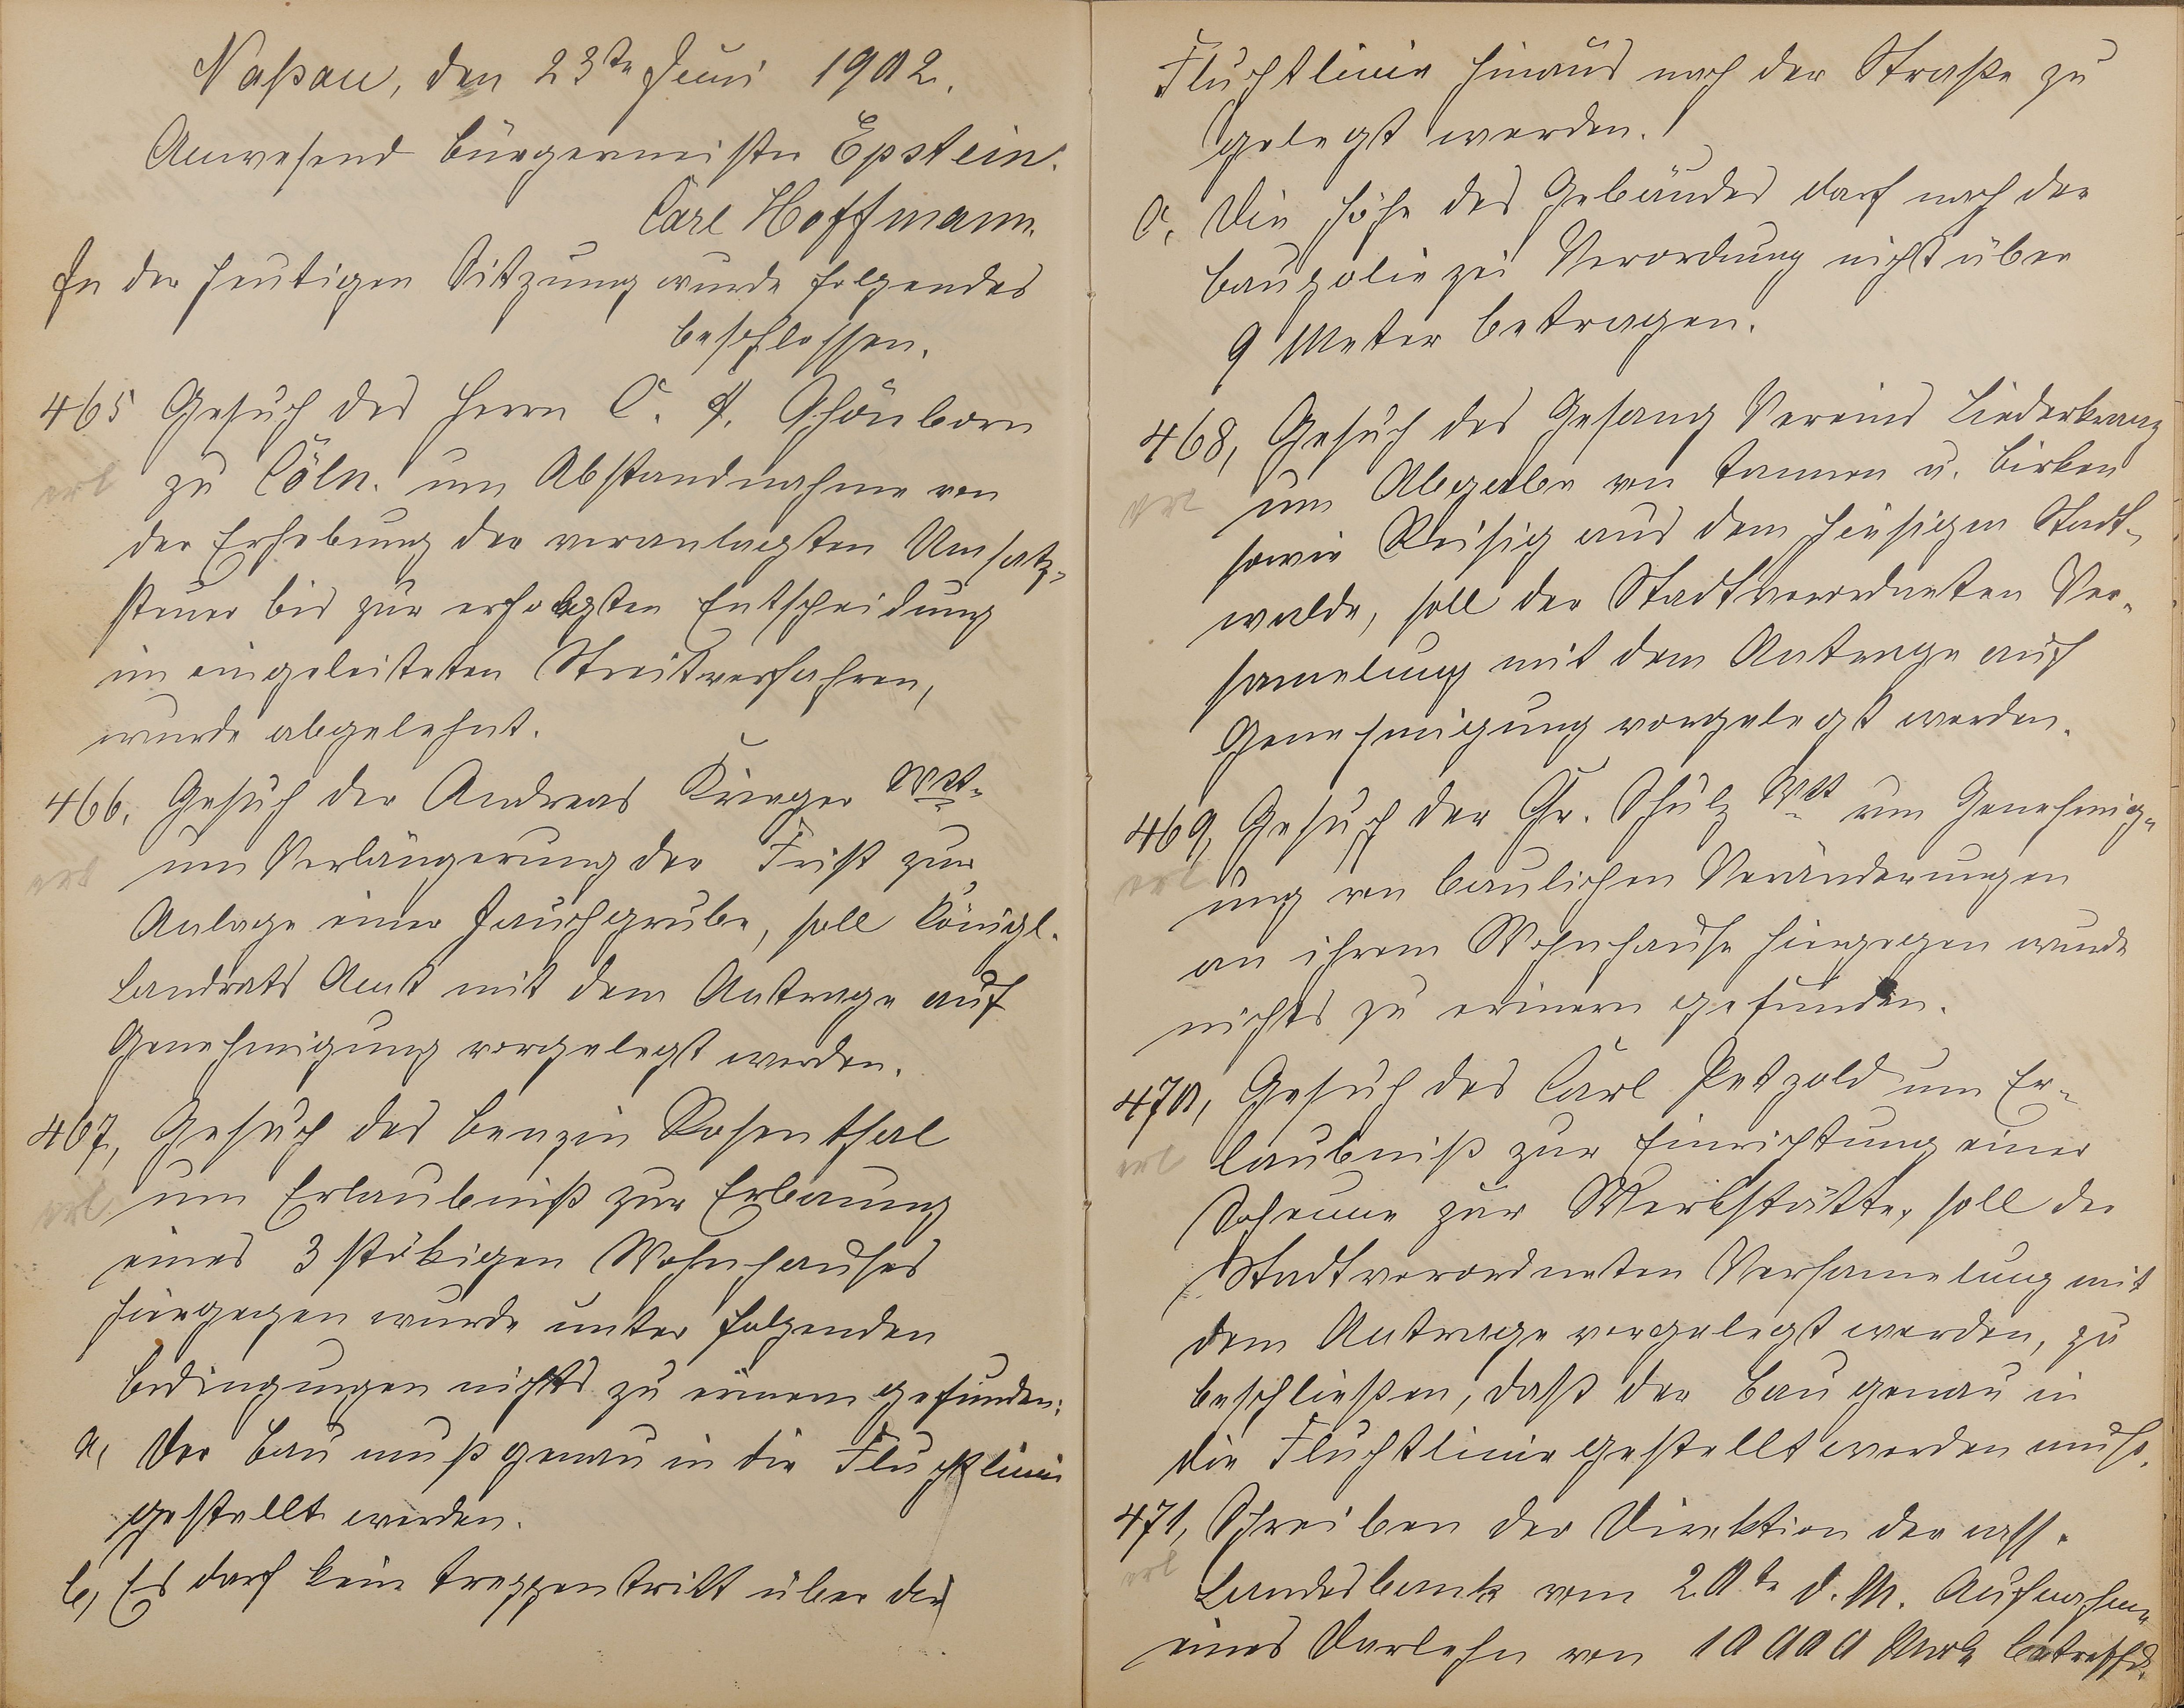 Naßau, den 23te Juni 1902.
Anwesend Bürgermeister Epstein.
Carl Hoffmann.
In der heutigen Sitzung wurde folgendes
beschlossen.
465 Gesuch des Herrn C. A. Schönborn
erl zu Cöln. um Abstandnahme von
der Erhebung der veranlagten Umsatz-
steuer bis zur erfolgten Entscheidung
im eingeleiteten Streitverfahren,
wurde abgelehnt.
466, Gesuch der Andreas Krieger Wtt.
erl um Verlängerung der Frist zur
Anlage einer Jauchgrube, soll Königl.
Landrats Amt mit dem Antrage auf
Genehmigung vorgelegt werden.
467, Gesuch des Benzin Rosenthal
erl um Erlaubniß zur Erbauung
eines 3 stökigen Wohnhauses
hiergegen wurde unter folgenden
Bedingungen nichts zu erinern gefunden:
a, Der Bau muß genau in die Fluchtlinie
gestellt werden.
b, Es darf kein Treppentritt über die
Fluchtlinie hinaus nach der Straße zu
gelegt werden.
c, Die Höhe des Gebäudes darf nach der
Baupolizei Verordnung nicht über
9 Meter betragen.
468, Gesuch des Gesang Vereins Liederkranz
erl um Abgabe von Tannen u. Birken
sowie Reisig aus dem hiesigen Stadt-
walde, soll der Stadtverordneten Ver-
samelung mit dem Antrage auf
Genehmigung vorgelegt werden.
469, Gesuch der Chr. Schulz Wtt um Genehmig-
erl ung von baulichen Veränderungen
an ihrem Wohnhause hiergegen wurde
nichts zu erinern gefunden.
470, Gesuch des Carl Petzold um Er-
erl laubniß zur Einrichtung einer
Scheune zur Werkstätte, soll der
Stadtverordneten Versamelung mit
dem Antrage vorgelegt werden, zu
beschließen, daß der Bau genau in
die Fluchtlinie gestellt werden muß.
471, Schreiben der Direktion der nass.
erl Landesbank vom 20te d. M. Aufnahme
eines Darlehn von 10000 Mark betreffd.